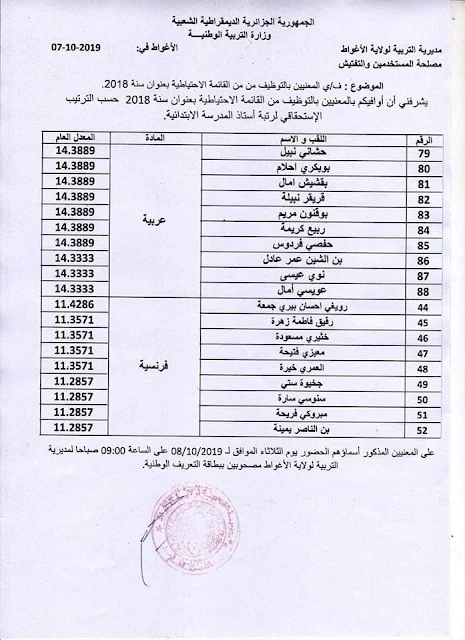 الجمهورية الجزائرية الديمقراطية الشعبية
وزارة التربية الوطنيـــة
مديرية التربية لولاية الأغواط
الأغواط في: 07-10-2019
مصلحة المستخدمين والتفتيش
الموضوع : ف/ي المعنيين بالتوظيف من من القائمة الاحتياطية بعنوان سنة 2018.
يشرفني أن أوافيكم بالمعنيين بالتوظيف من القائمة الاحتياطية بعنوان سنة 2018 حسب الترتيب
الإستحقاقي لرتبة أستاذ المدرسة الابتدائية.
الرقم اللقب و الاسم المادة المعدل العام
79 حشاني نبيل 14.3889
80 بوبكري احلام 14.3889
81 بقشيش امال 14.3889
82 قريقر نبيلة 14.3889
83 بوقنون مريم 14.3889
عربية
84 ربيع كريمة 14.3889
85 حفصي فردوس 14.3889
86 بن الشين عمر عادل 14.3333
87 نوي عيسى 14.3333
88 عويسي أمال 14.3333
44 رويغي احسان بيري جمعة 11.4286
45 رفيق فاطمة زهرة 11.3571
46 خثيري مسعودة 11.3571
47 معيزي فتيحة 11.3571
48 العمري خيرة 11.3571
فرنسية
49 جخيوة ستي 11.2857
50 سنوسي سارة 11.2857
51 مبروكي فريحة 11.2857
52 بن الناصر يمينة 11.2857
على المعنيين المذكور أسماؤهم الحضور يوم الثلاثاء الموافق لـ 08/10/2019 على الساعة 09:00 صباحا لمديرية
التربية لولاية الأغواط مصحوبين ببطاقة التعريف الوطنية.